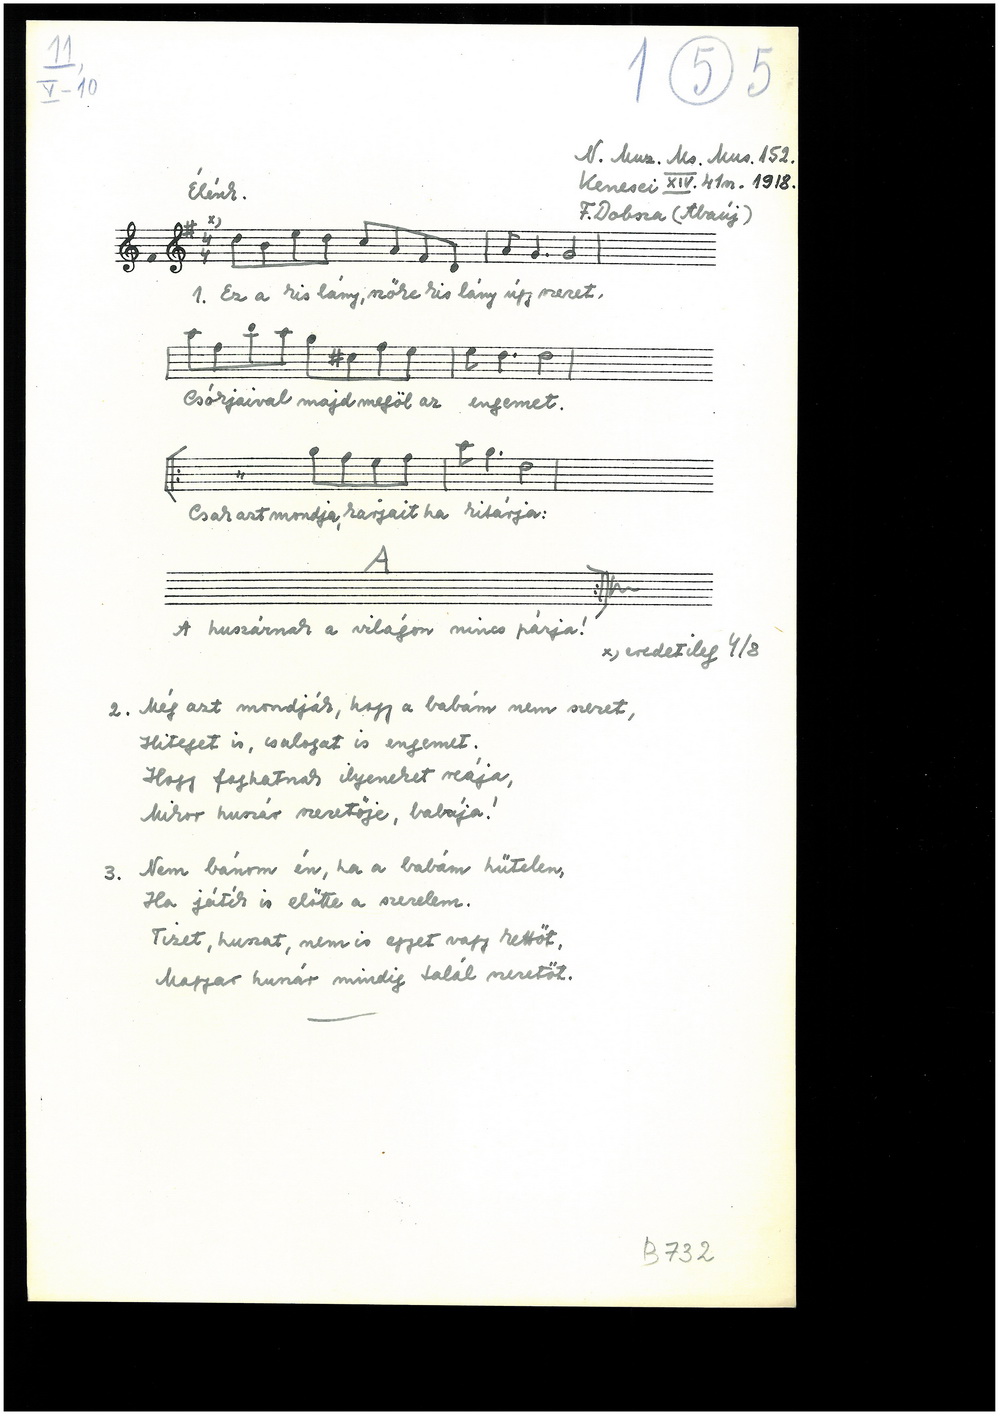 11,
V-10
1 5 5
N. Muz. Ms. Mus. 152.
Kenesei XIV. 41n. 1918.
F. Dobsza (Abaúj)
Élénk.
x)
4/4
1. Ez a kis lány, szőke kis lány úgy szeret,
Csókjaival majd megöl az engemet.
Csak azt mondja, karjait ha kitárja:
A
A huszárnak a világon nincs párja!
x) eredetileg 4/8
2. Még azt mondják, hogy a babám nem szeret,
Hiteget is, csalogat is engemet.
Hogy foghatnak ilyeneket reája,
Mikor huszár szeretője, babája!
3. Nem bánom én, ha a babám hűtelen,
Ha játék is előtte a szerelem.
Tizet, huszat, nem is egyet vagy kettőt,
Magyar huszár mindig talál szeretőt.
B 732